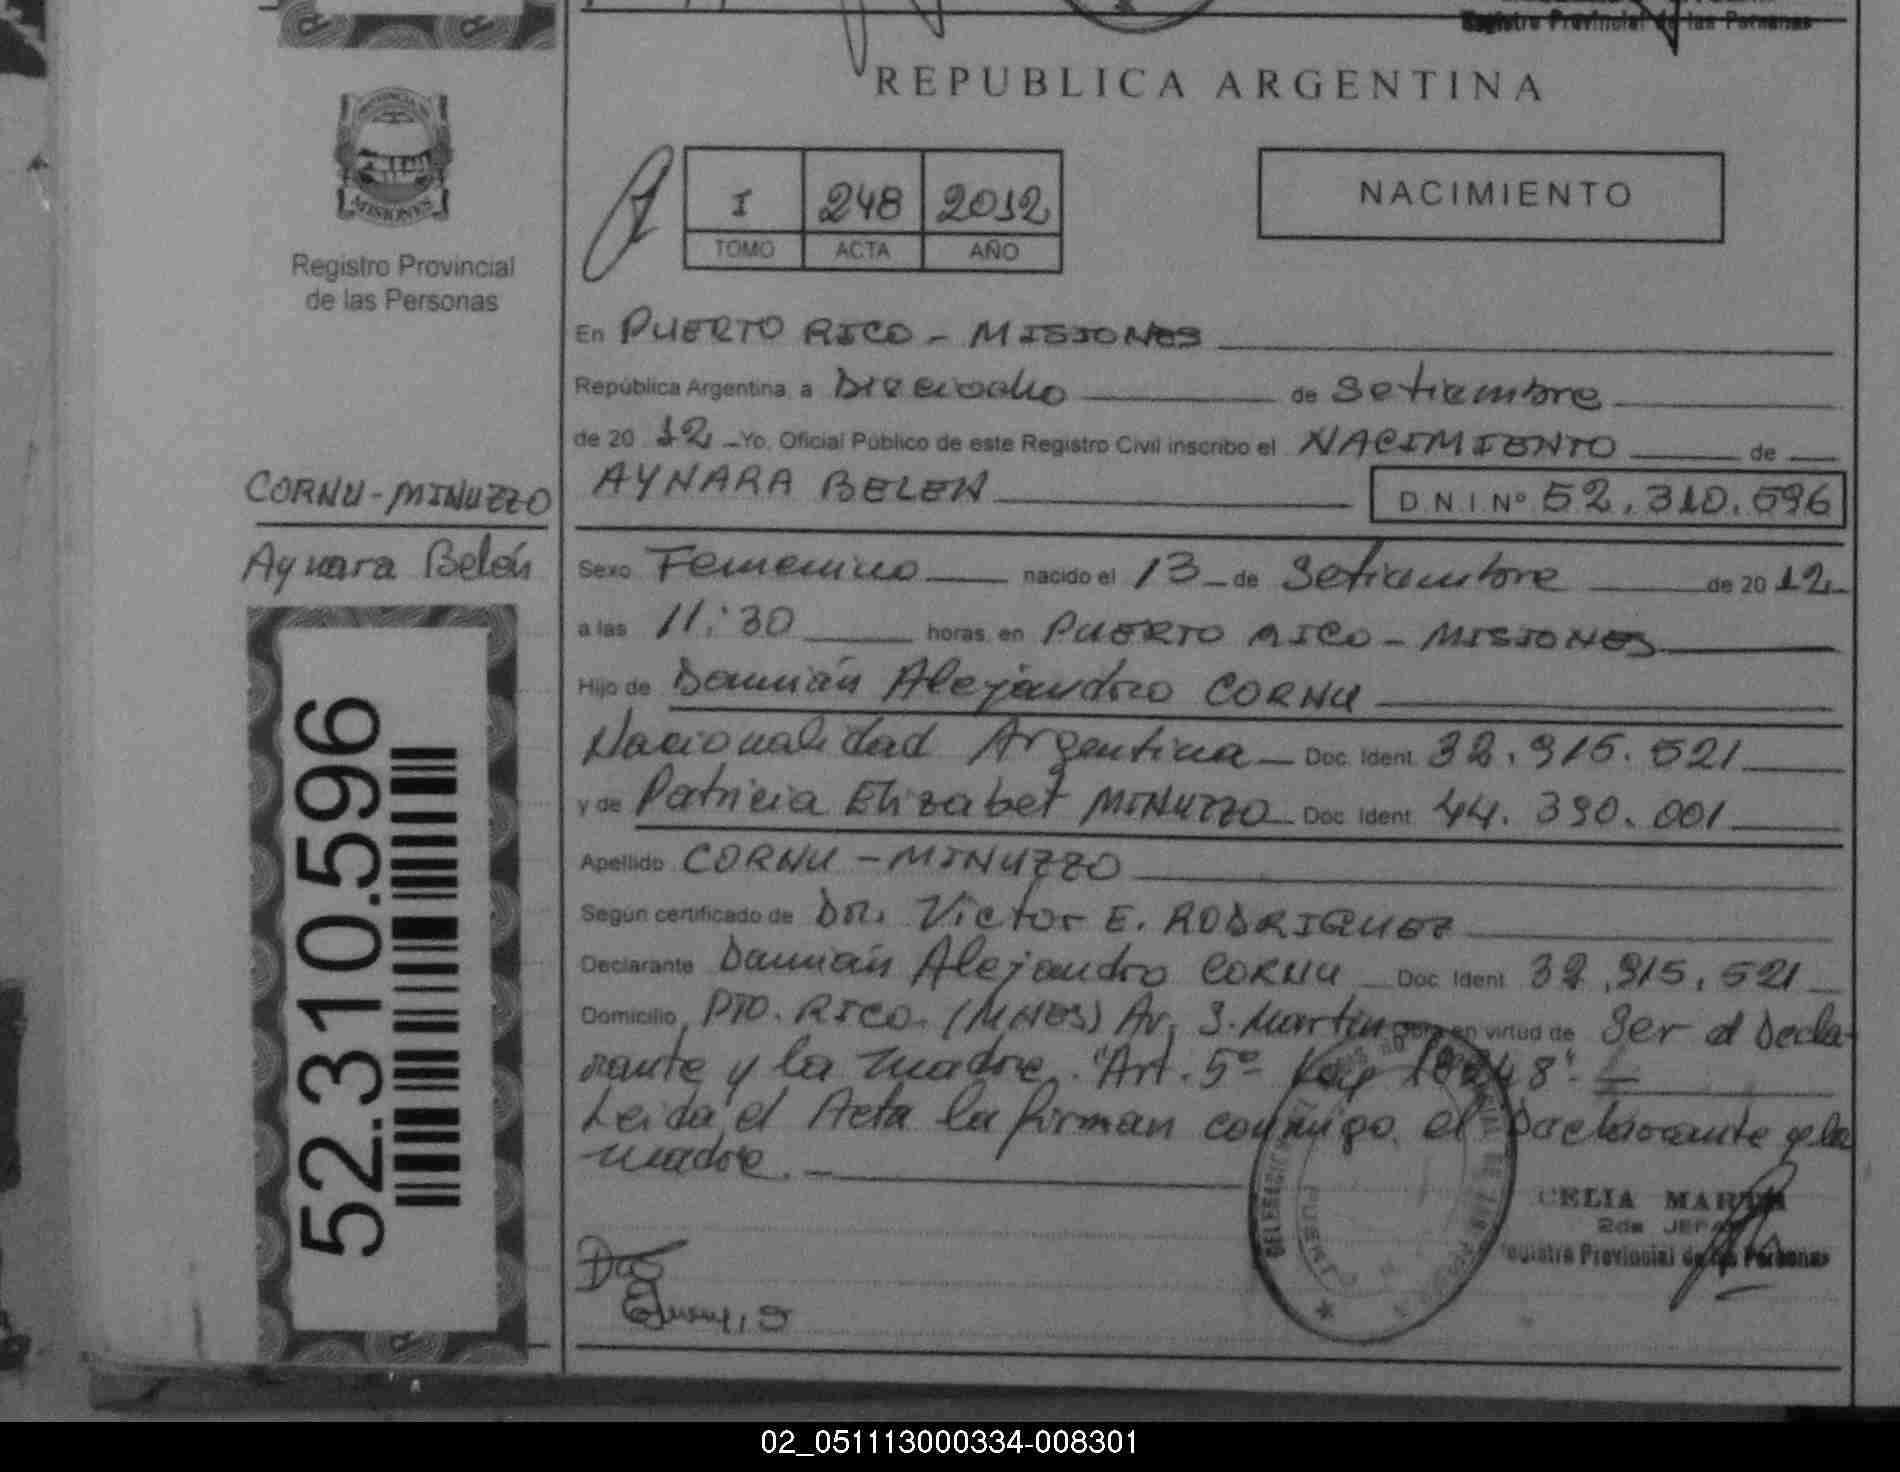 Registro Provincial de las Personas
REPUBLICA ARGENTINA
PROVINCIA DE
MISIONES
Registro Provincial
de las Personas
I 248 2012
TOMO ACTA AÑO
NACIMIENTO
En PUERTO RICO - MISIONES
República Argentina, a Dieciocho de Setiembre
de 2012 Yo, Oficial Público de este Registro Civil inscribo el NACIMIENTO de
AYNARA BELEN D.N.I. Nº 52.310.596
CORNU-MINUZZO
Aynara Belén
52.310.596
Sexo Femenino nacido el 13 de Setiembre de 2012
a las 11:30 horas, en PUERTO RICO - MISIONES
Hijo de Damián Alejandro CORNU
Nacionalidad Argentina Doc. Ident. 32.915.521
y de Patricia Elizabet MINUZZO Doc. Ident. 44.390.001
Apellido CORNU - MINUZZO
Según certificado de Dr. Victor E. RODRIGUEZ
Declarante Damián Alejandro CORNU Doc. Ident. 32.915.521
Domicilio PTO. RICO. (MNES) Av. S. Martin en virtud de Ser el Decla-
rante y la madre. "Art. 5º Ley 18248".
Leida el Acta la firman conmigo el Declarante y la
madre.
CELIA
2da JEFA
Registro Provincial de las Personas
02_051113000334-008301